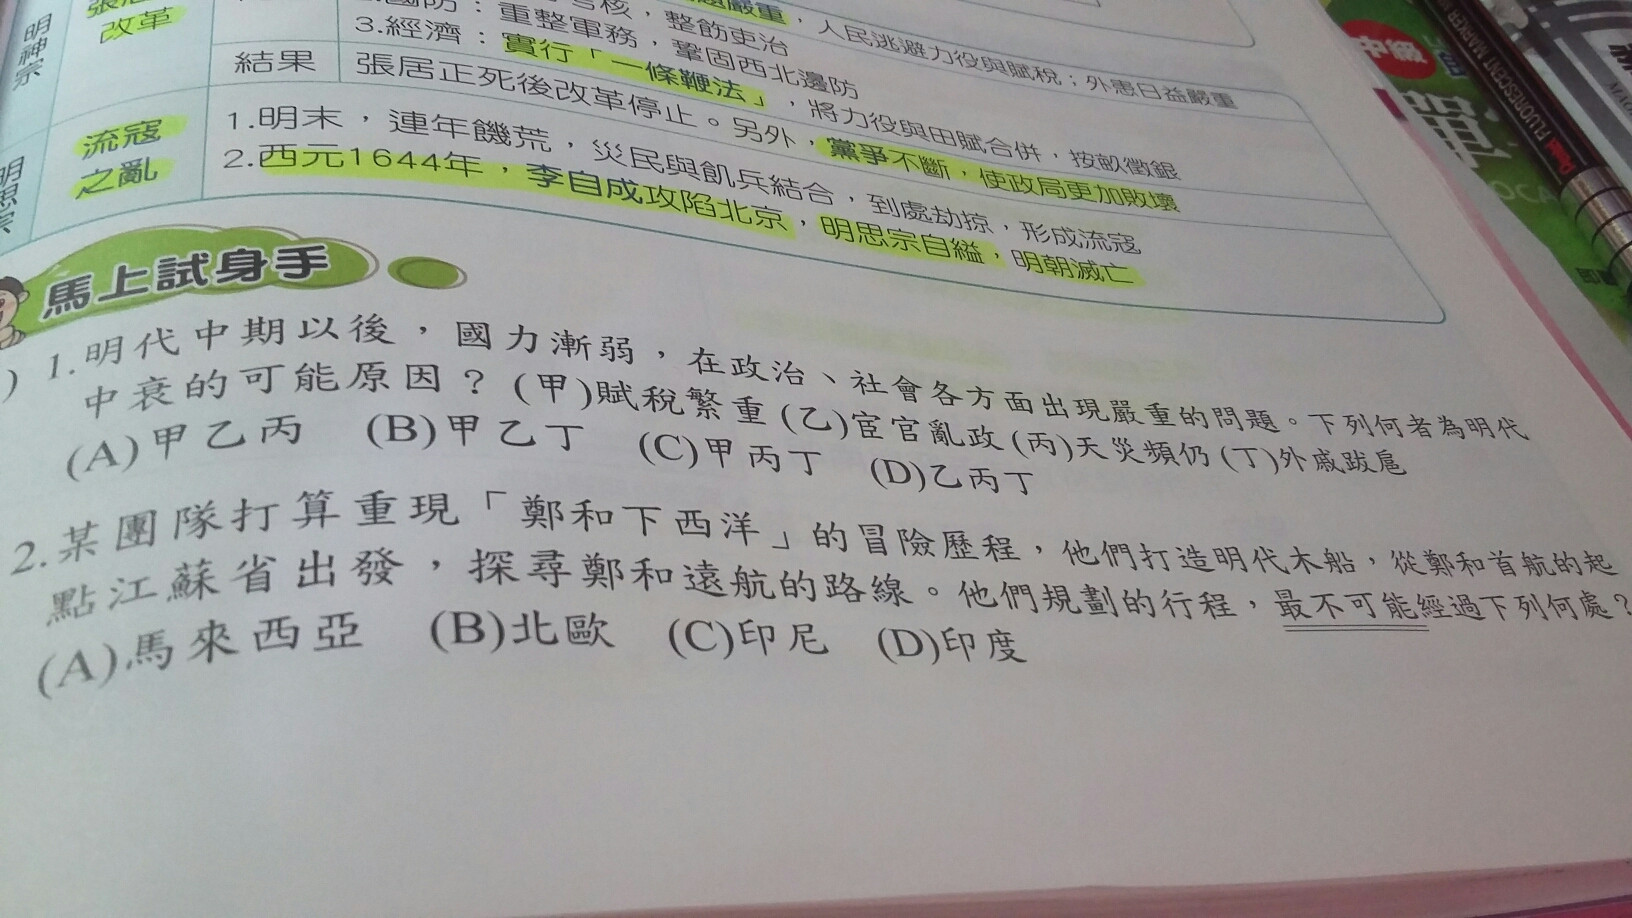 明神宗
改革
嚴重，人民逃避力役與賦稅；外患日益嚴重
考核，整飭吏治
國防：重整軍務，鞏固西北邊防
3.經濟：實行「一條鞭法」，將力役與田賦合併，按畝徵銀
結果
張居正死後改革停止。另外，黨爭不斷，使政局更加敗壞
明思宗
流寇
之亂
1.明末，連年饑荒，災民與飢兵結合，到處劫掠，形成流寇
2.西元1644年，李自成攻陷北京，明思宗自縊，明朝滅亡
馬上試身手
)1.明代中期以後，國力漸弱，在政治、社會各方面出現嚴重的問題。下列何者為明代
中衰的可能原因？(甲)賦稅繁重 (乙)宦官亂政 (丙)天災頻仍 (丁)外戚跋扈
(A)甲乙丙 (B)甲乙丁 (C)甲丙丁 (D)乙丙丁
2.某團隊打算重現「鄭和下西洋」的冒險歷程，他們打造明代木船，從鄭和首航的起
點江蘇省出發，探尋鄭和遠航的路線。他們規劃的行程，最不可能經過下列何處？
(A)馬來西亞 (B)北歐 (C)印尼 (D)印度
中級
單
FLUORESCENT MARKER